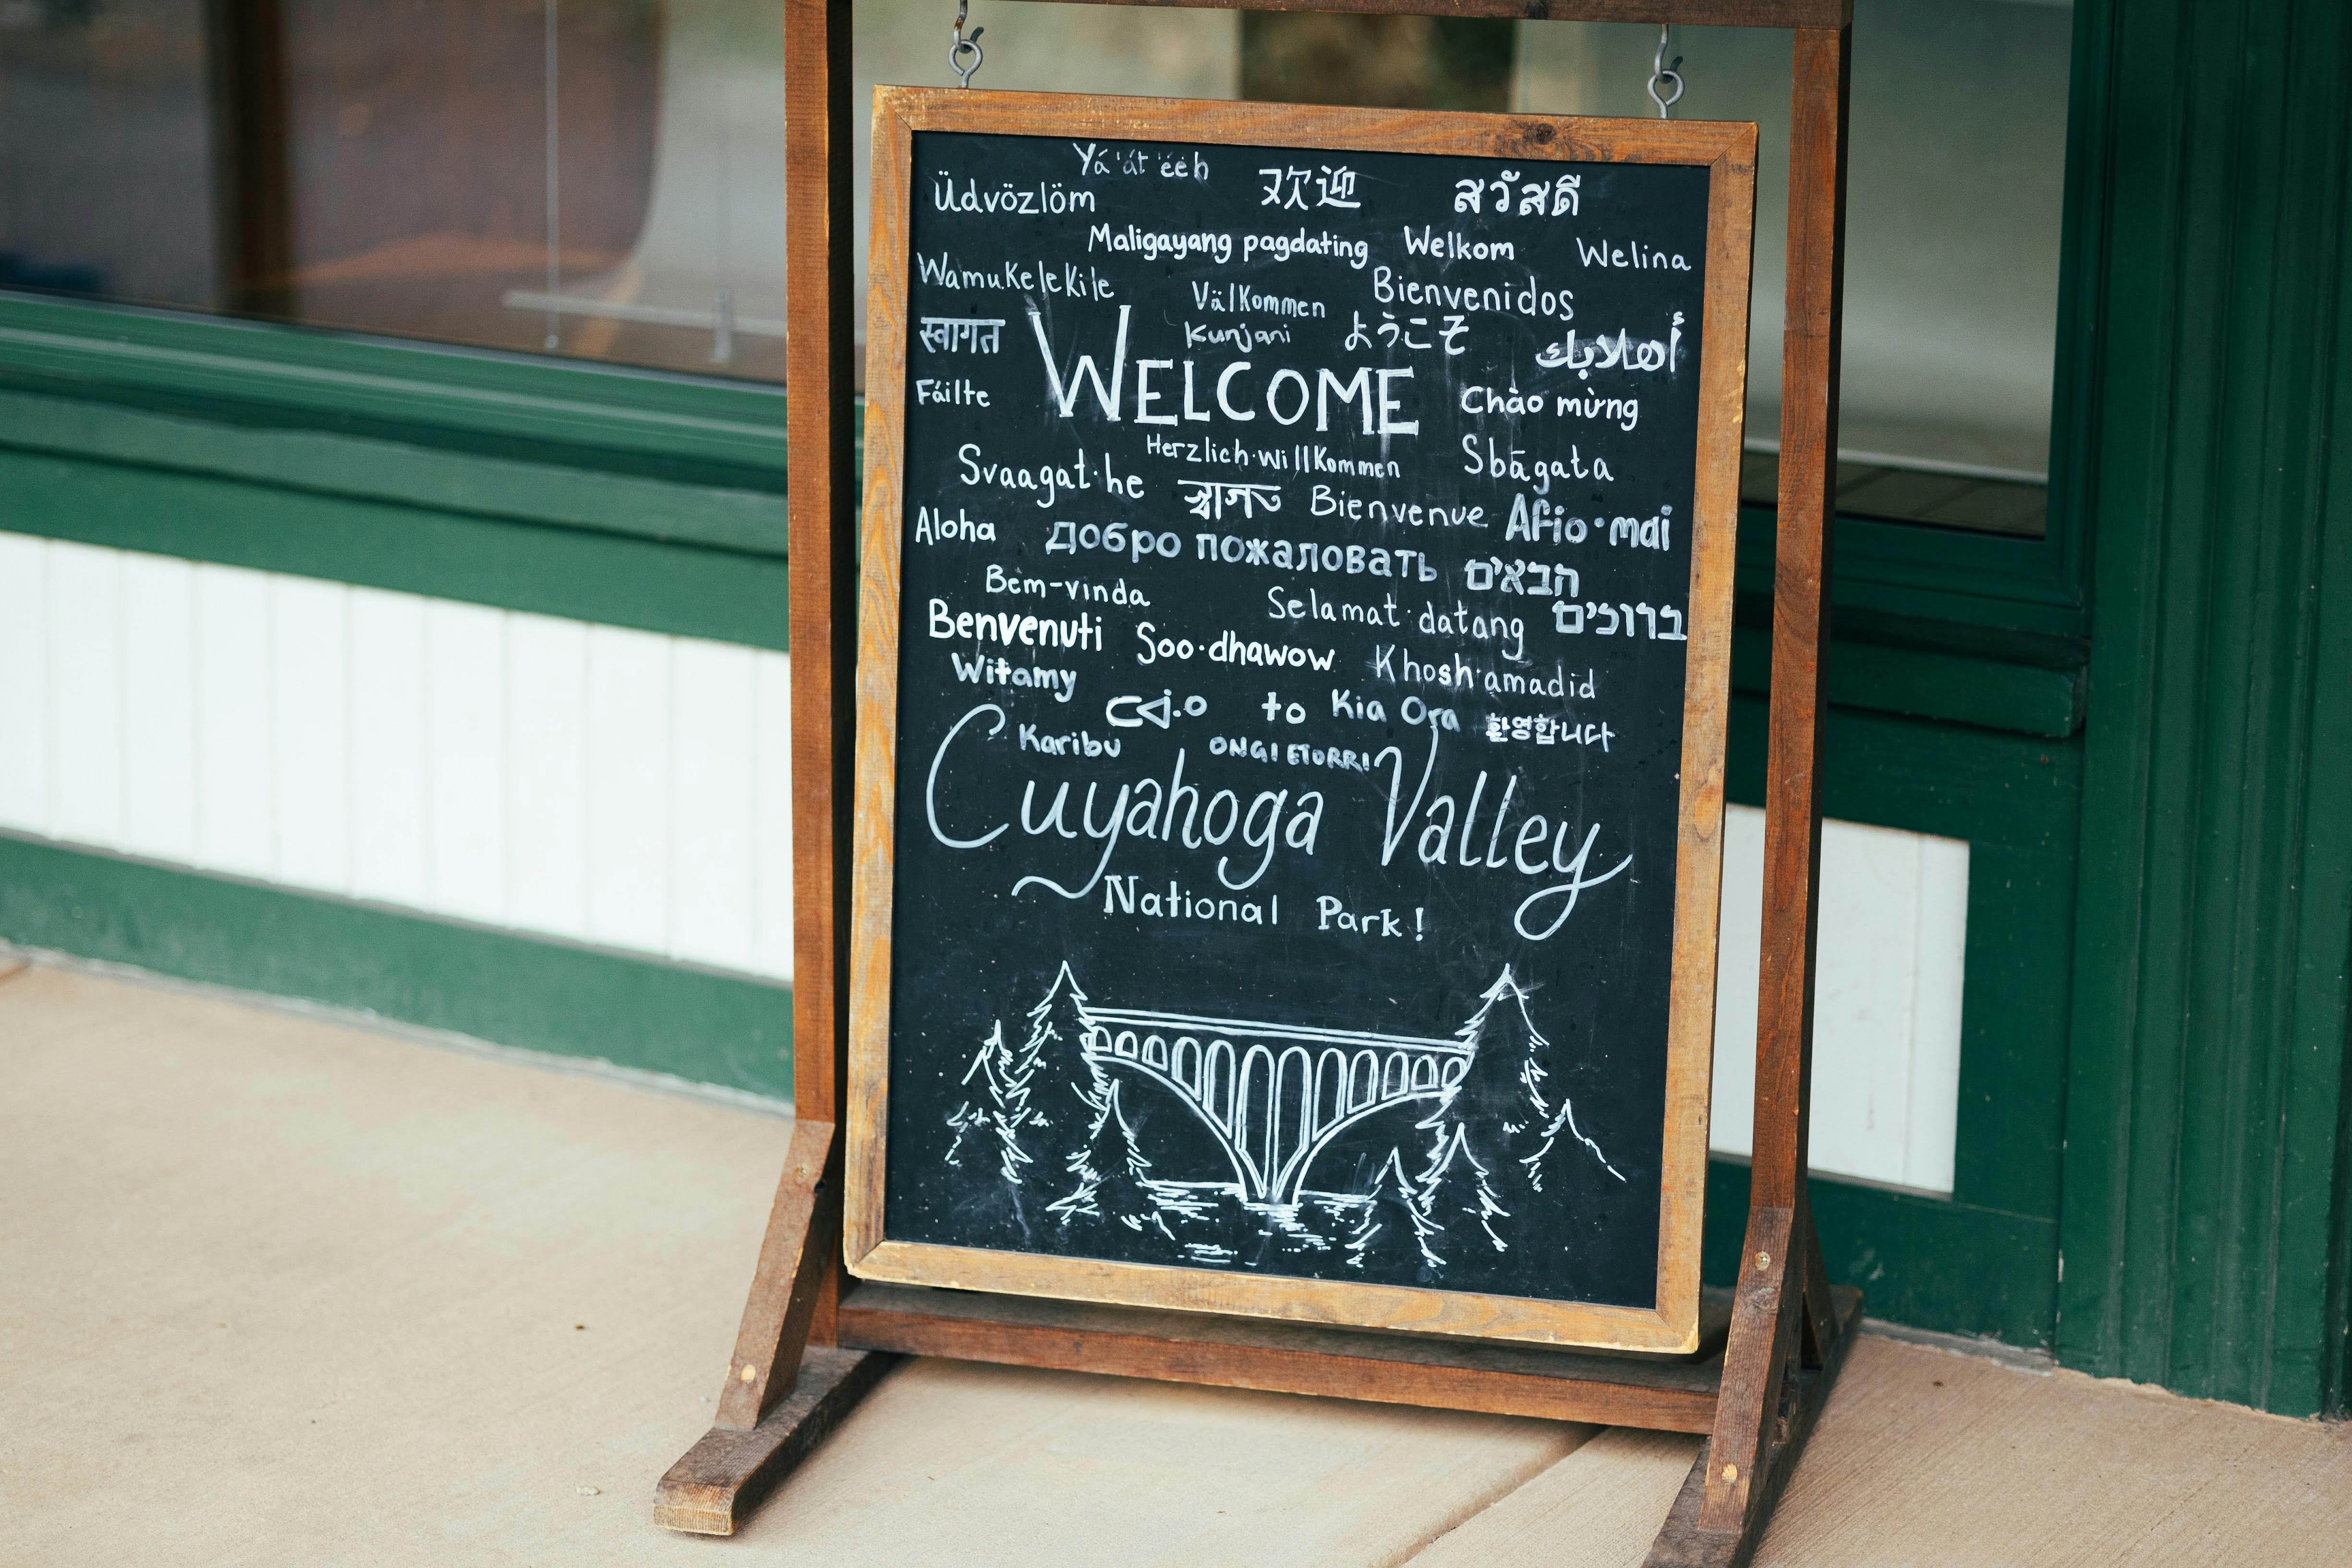 Yá'át'ééh
Üdvözlöm 欢迎 สวัสดี
Maligayang pagdating Welkom Welina
Wamukelekile Välkommen Bienvenidos
स्वागत Kunjani ようこそ أهلا بك
Fáilte WELCOME Chào mừng
Herzlich·willkommen Sbāgata
Svaagat·he স্বাগত Bienvenue Afio·mai
Aloha Добро пожаловать הבאים
Bem-vinda Selamat·datang ברוכים
Benvenuti Soo·dhawow Khosh·amadid
Witamy to Kia Ora 환영합니다
Karibu ONGI ETORRI
Cuyahoga Valley
National Park!